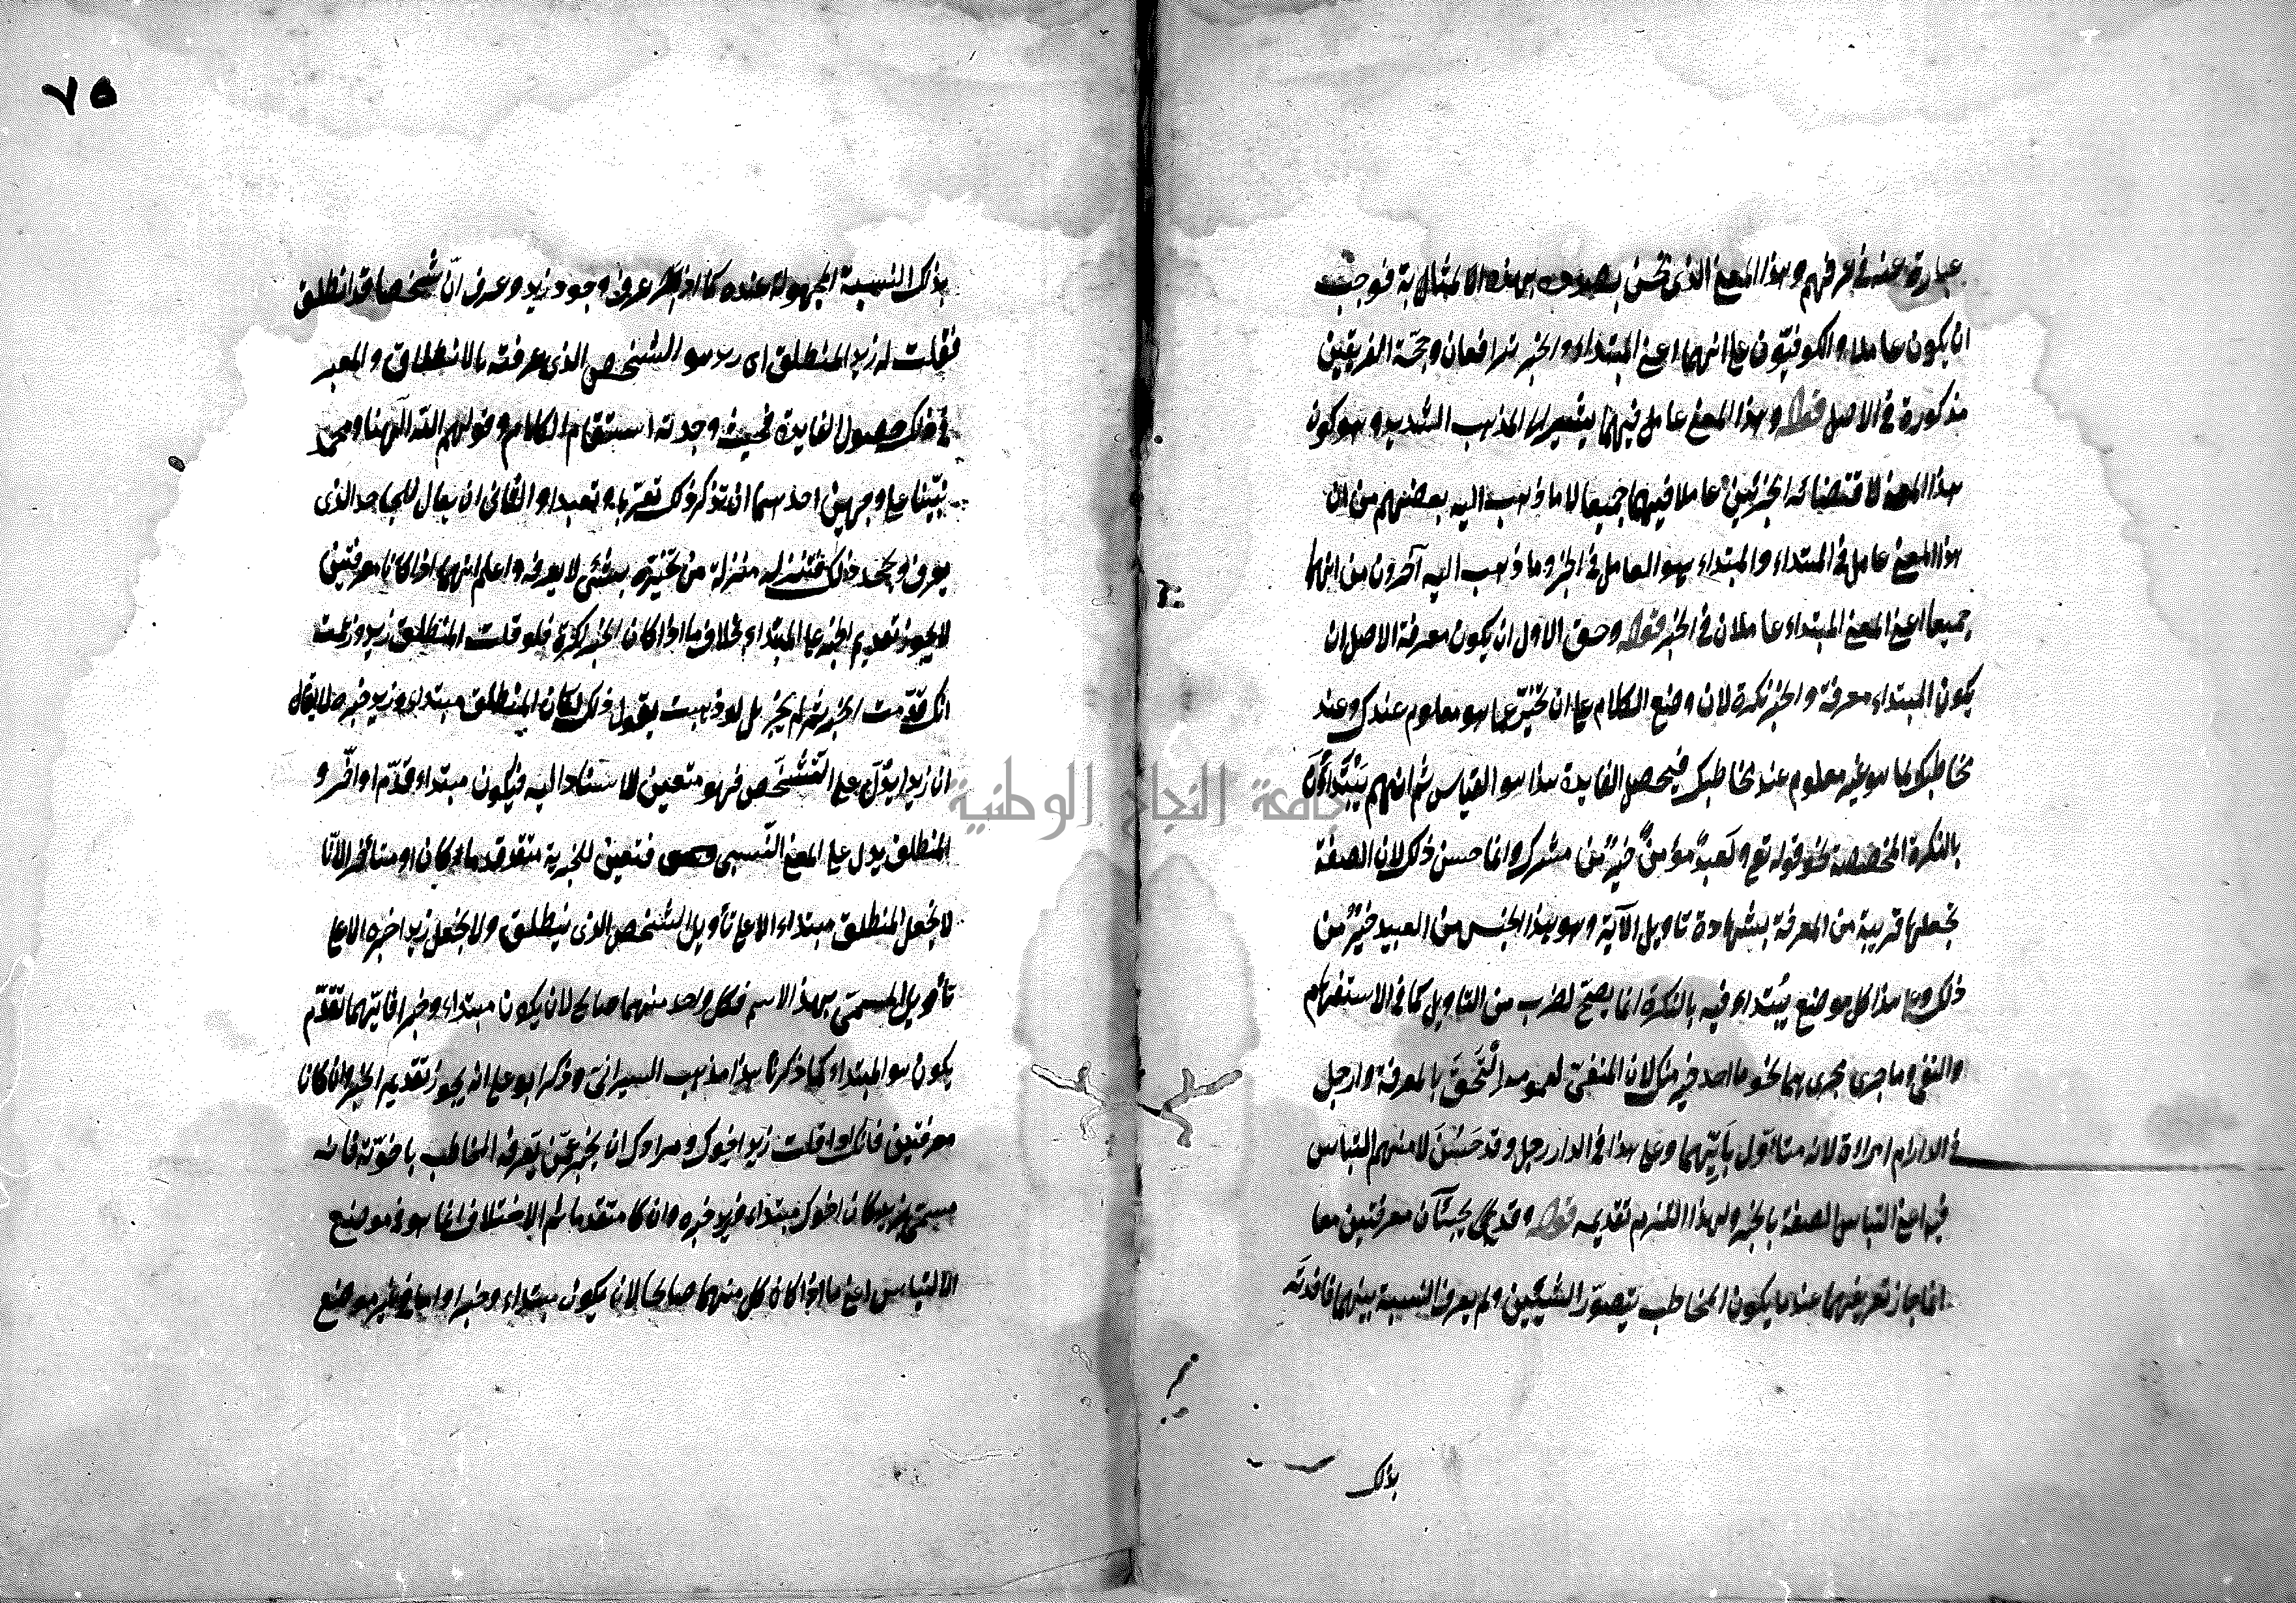 عبارة عنه في عرفهم وهذا المعنى الذي نحن بصدده بهذه المثابة فوجب
ان يكون عاملا والكوفيّون على انهما اعنى المبتداء والخبر يترافعان وحجّة الفريقين
مذكورة في الاصل قوله وهذا المعنى عامل فيهما يشير الى المذهب السديد وهو كون
هذا المعنى لاقتضائه الجزئين عاملا فيهما جميعا لا ما ذهب اليه بعضهم من ان
هذا المعنى عامل في المبتداء والمبتداء هو العامل في الخبر وما ذهب اليه آخرون من انهما
جميعا اعنى المعنى المبتداء عاملان في الخبر قوله وحق الاول ان يكون معرفة الاصل ان
يكون المبتداء معرفة والخبر نكرة لان وضع الكلام على ان تخبّر عما هو معلوم عندك وعند
مخاطبك بما هو غير معلوم عند مخاطبك فيحصل الفايدة هذا هو القياس ثم انهم يَبْتَدِأُونَ
بالنكرة المخصصة نحو قوله تع ولَعبدٌ مؤمنٌ خيرٌ من مشرك وانما حسن ذلك لان الصفة
تجعلها قريبة من المعرفة بشهادة تاويل الآية وهو هذا الجنس من العبيد خيرٌ من
ذلك وعلى هذا كل موضع يُبتداء فيه بالنكرة انما يصحّ لضرب من التاويل كما في الاستفهام
والنفي وما جرى مجرى بهما نحو ما احد خير منك لان المنفيّ لعمومه الْتَحَقَ بالمعرفة وارجل
في الدار ام امراءة لانه متأوّل بأيّهما وعلى هذا في الدار رجل وقد حَسُنَ لا منهم التباس
فيه اعنى التباس الصفة بالخبر ولهذا التزم تقديمه قوله وقد يجيئآن معرفتين معا
انما جاز تعريفهما عندما يكون المخاطب يتصوّر الشيئين ولم يعرف النسبة بينهما فافدتَه
بذلك
٧٥
بذلك النسبة المجهولة عنده كما اذا عرف وجود زيد وعرف انّ شخصا قد انطلق
فقلت له زيد المنطلق اى زيد هو الشخص الذى عرفته بالانطلاق والمعبر
في ذلك حصول الفايدة فحيث وجدته استقام الكلام وقولهم الله آلهنا ومحمد
نبيّنا على وجهين احدهما ان تذكر ذلك تقرّبا وتعبدا والثاني ان يقال للجاحد الذى
يعرف ويجحد ذلك فتنزله منزلة من تخبّره بشئى لا يعرفه واعلم انهما اذا كانا معرفتين
لا يجوز تقديم الخبر على المبتداء بخلاف ما اذا كان الخبر نكرة فلو قلت المنطلق زيد وزعمت
انك قدّمت الخبر لم يجز بل لو ذهبت يقول ذلك لكان المنطلق مبتداء وزيد خبره لا يقال
ان زيدا يدلّ على التشخّص فهو متعين للاسناد اليه فيكون مبتداء قدّم او اخّر و
المنطلق يدل على المعنى النّسبى فتعين للخبرية متقدما كان او متأخرا لأنّا
لا نجعل المنطلق مبتداء الا على تأويل الشخص الذى ينطلق ولا نجعل زيدا خبره الا على
تأويل المسمّى بهذا الاسم فكل واحد منهما صالح لان يكون مبتداء وخبرا فايّهما تقدّم
يكون هو المبتداء كما ذكرنا هذا مذهب السيرافى وذكر ابو على انه يجوز تقديم الخبر وان كانا
معرفتين فانك اذا قلت زيد اخوك ومرادك ان يخبر عمّن يَعرفه المخاطب باخوّته فانه
مسمّى بزيد كان اخوك مبتداء وزيد خبره وان كا متقدما ثم الاختلاف انما هو في موضع
الالتباس اعنى ما اذا كان كل منهما صالحا لان يكون مبتداء وخبرا واما في غير موضع
جامعة النجاح الوطنية